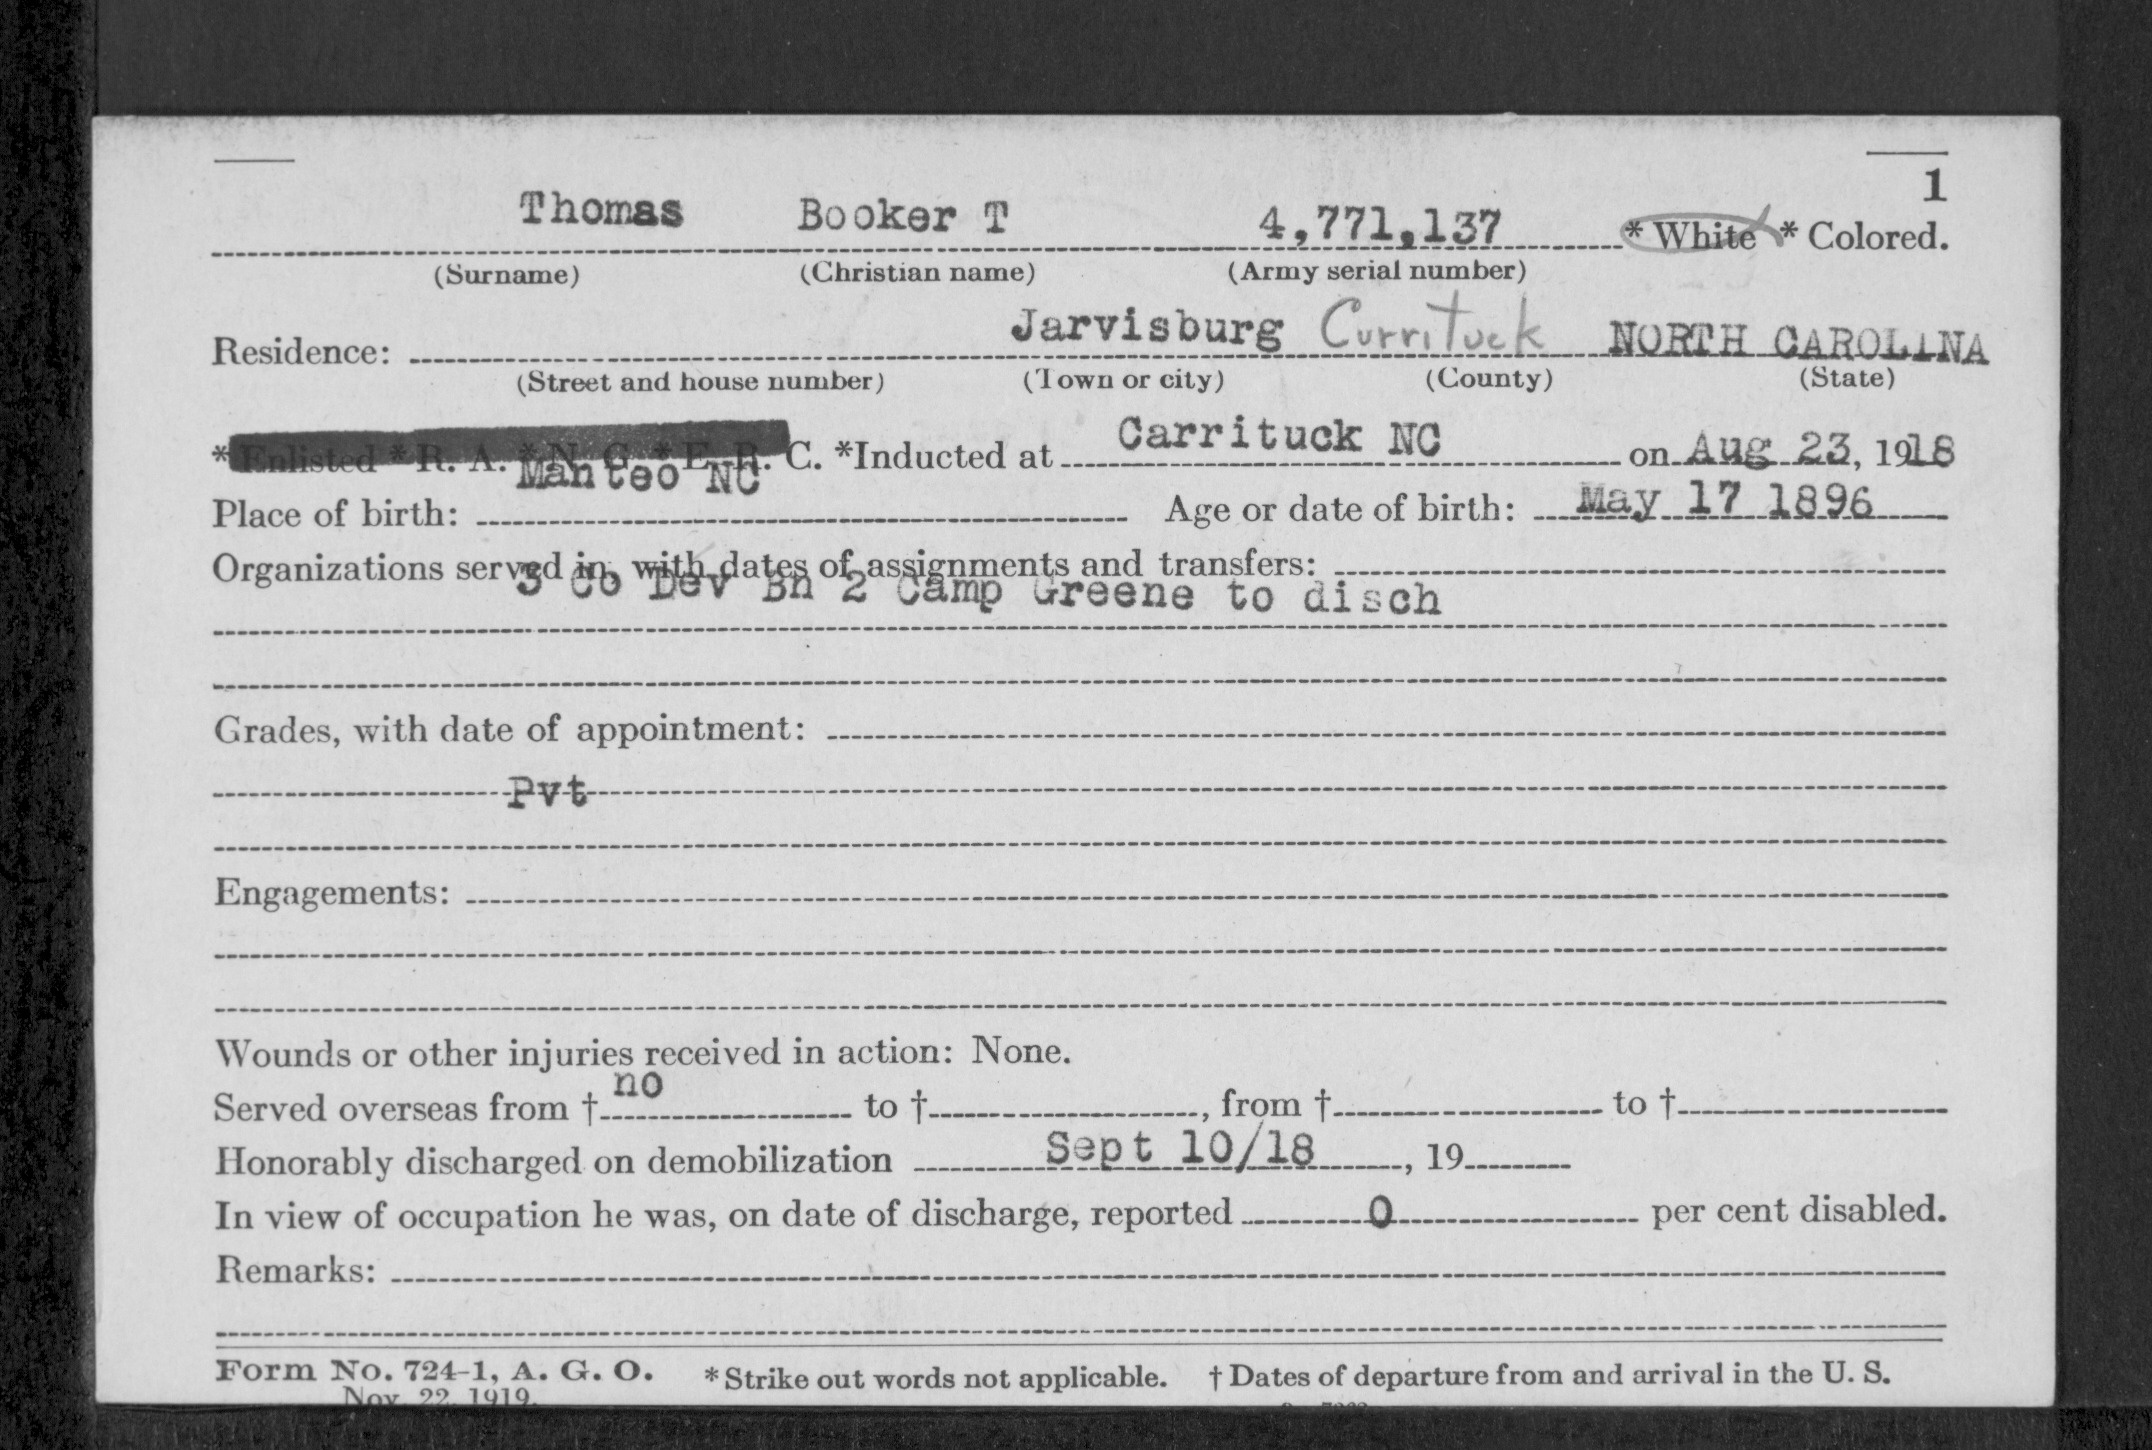 1
Thomas Booker T 4,771,137 * White * Colored.
(Surname) (Christian name) (Army serial number)
Jarvisburg Currituck NORTH CAROLINA
Residence:
(Street and house number) (Town or city) (County) (State)
* Enlisted * R. A. * N. G. * E. R. C. *Inducted at Carrituck NC on Aug 23, 1918
Manteo NC
Place of birth: Age or date of birth: May 17 1896
Organizations served in, with dates of assignments and transfers:
3 Co Dev Bn 2 Camp Greene to disch
Grades, with date of appointment:
Pvt
Engagements:
Wounds or other injuries received in action: None.
Served overseas from † no to †, from † to †
Honorably discharged on demobilization Sept 10/18, 19
In view of occupation he was, on date of discharge, reported 0 per cent disabled.
Remarks:
Form No. 724-1, A. G. O. * Strike out words not applicable. † Dates of departure from and arrival in the U. S.
Nov. 22, 1919.